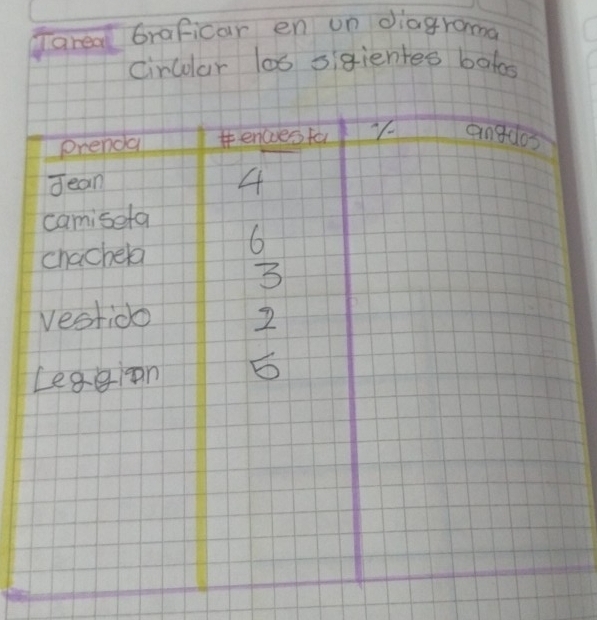 Tarea Graficar en un diagrama
Circular los sigientes batos
Prenda # encuesta % angulos
Jean 4
camiseta 6
chacheta 3
vestido 2
Leggion 5